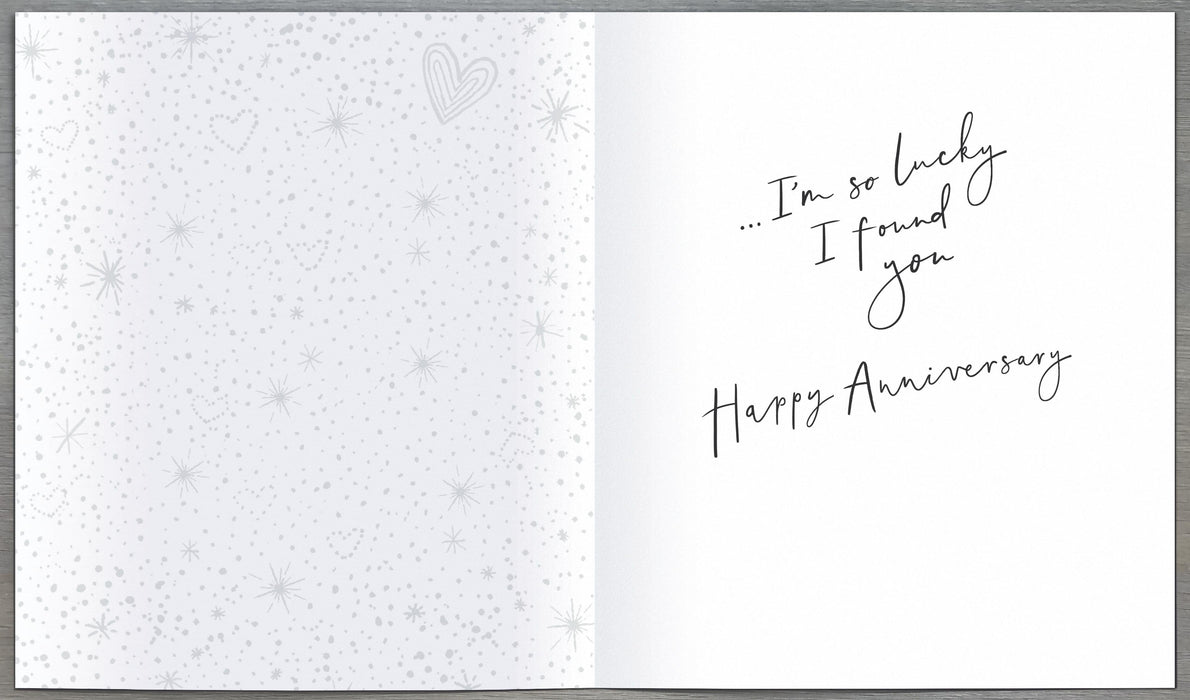 ...I'm so lucky
I found
you
Happy Anniversary